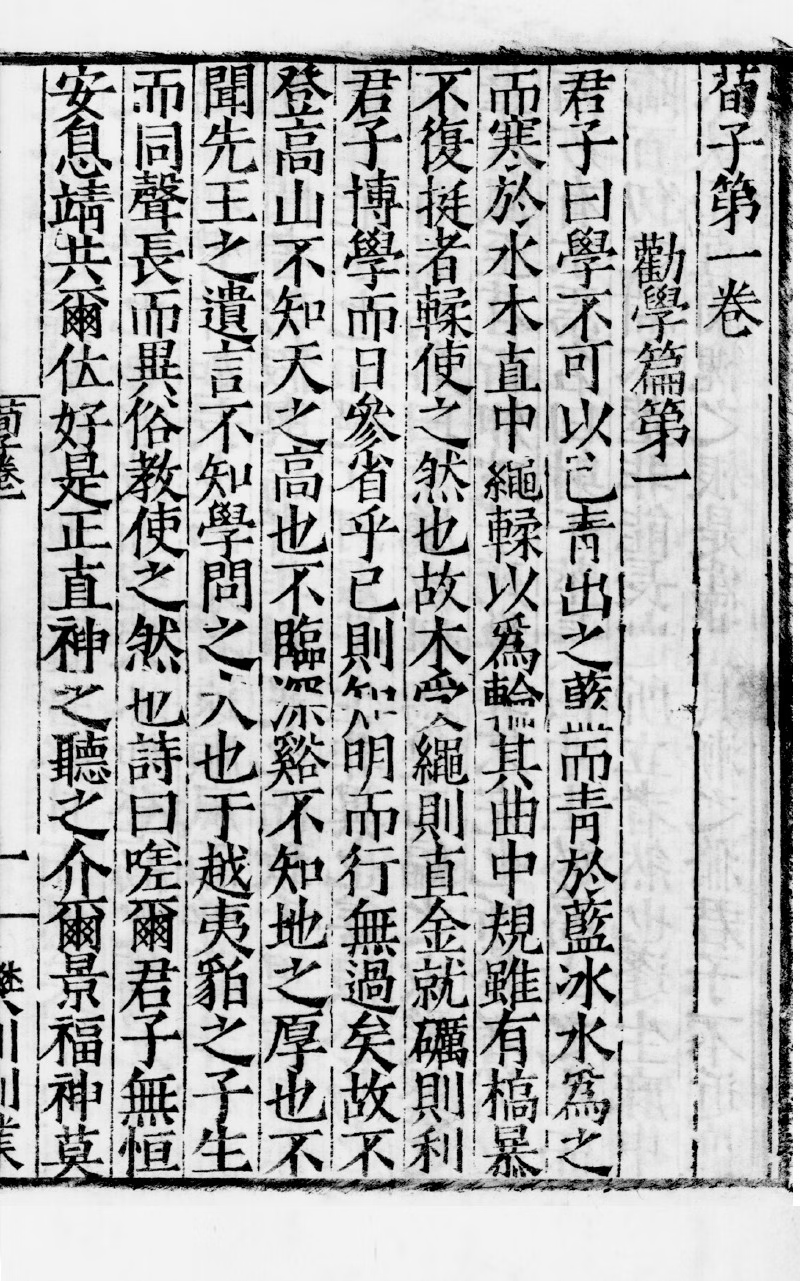 荀子第一卷
勸學篇第一
君子曰學不可以已青出之藍而青於藍冰水為之
而寒於水木直中繩輮以為輪其曲中規雖有槁暴
不復挺者輮使之然也故木受繩則直金就礪則利
君子博學而日參省乎已則知明而行無過矣故不
登高山不知天之高也不臨深谿不知地之厚也不
聞先王之遺言不知學問之大也于越夷貉之子生
而同聲長而異俗教使之然也詩曰嗟爾君子無恒
安息靖共爾位好是正直神之聽之介爾景福神莫
荀子卷一
一